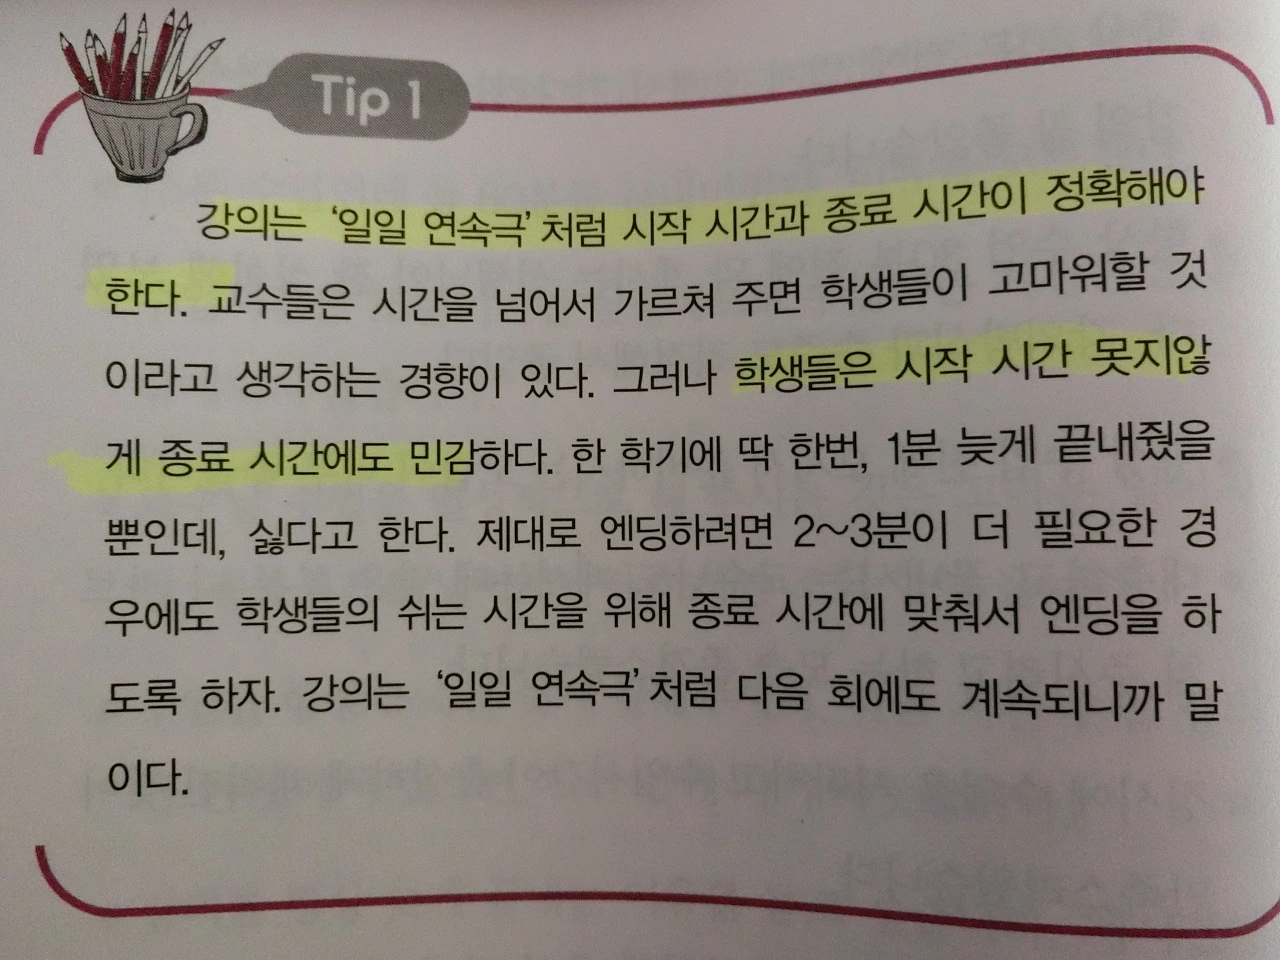 Tip 1
강의는 ‘일일 연속극’처럼 시작 시간과 종료 시간이 정확해야
한다. 교수들은 시간을 넘어서 가르쳐 주면 학생들이 고마워할 것
이라고 생각하는 경향이 있다. 그러나 학생들은 시작 시간 못지않
게 종료 시간에도 민감하다. 한 학기에 딱 한번, 1분 늦게 끝내줬을
뿐인데, 싫다고 한다. 제대로 엔딩하려면 2～3분이 더 필요한 경
우에도 학생들의 쉬는 시간을 위해 종료 시간에 맞춰서 엔딩을 하
도록 하자. 강의는 ‘일일 연속극’처럼 다음 회에도 계속되니까 말
이다.